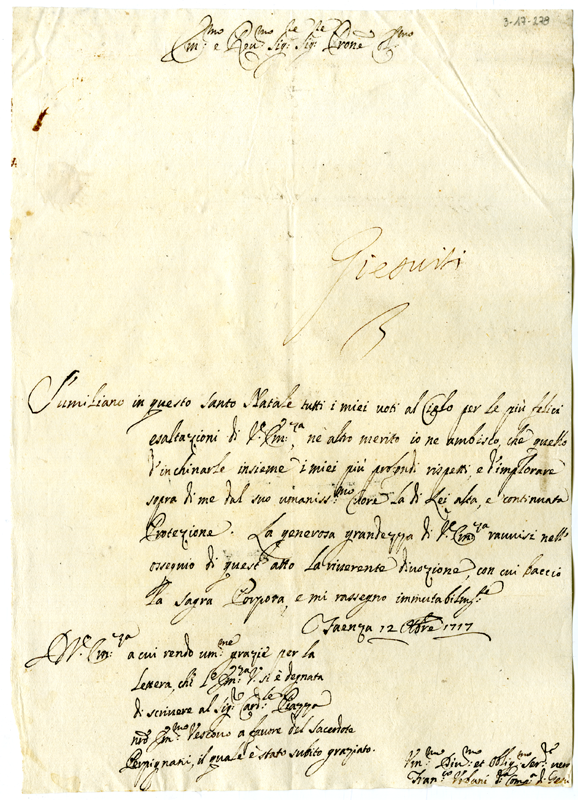 3-17-278
Em:mo e Rev:mo Sig:re Sig:re Prone C:mo
Giesuiti
S'umiliano in questo Santo Natale tutti i miei voti al Cielo per le più felici
esaltazioni di V:ª Em:za, nè altro merito io ne ambisco, che quello
d'inchinarle insieme i miei più profondi rispetti, e d'implorare
sopra di me dal suo umaniss:mo Cuore la di Lei alta, e continuata
Protezione. La generosa grandezza di V:ª Em:za ravvisi nell'
ossequio di quest'atto la riverente divozione, con cui baccio
la Sagra Porpora, e mi rassegno immutabilm:te
Faenza 12 Xbre 1717
D. V:ª Em:za a cui rendo um:me grazie per la
lettera, che l'Em:za V:ª si è degnata
di scrivere al Sig:r Card:le Piazza
nro Em:mo Vescovo a favore del Sacerdote
Perpignani, il quale è stato subito graziato.
Um:mo Div:mo et oblig:mo Ser:re vero
Fran:co Urbani d:a Comp:a di Giesù